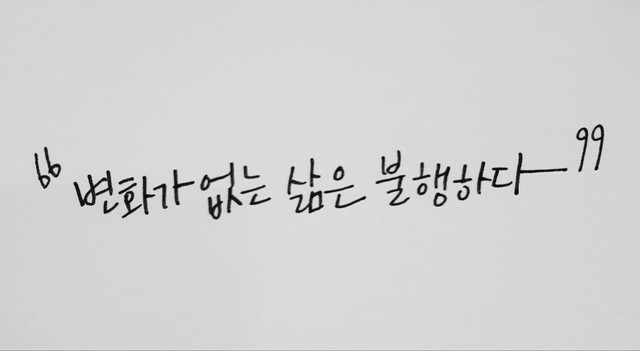 “변화가 없는 삶은 불행하다”